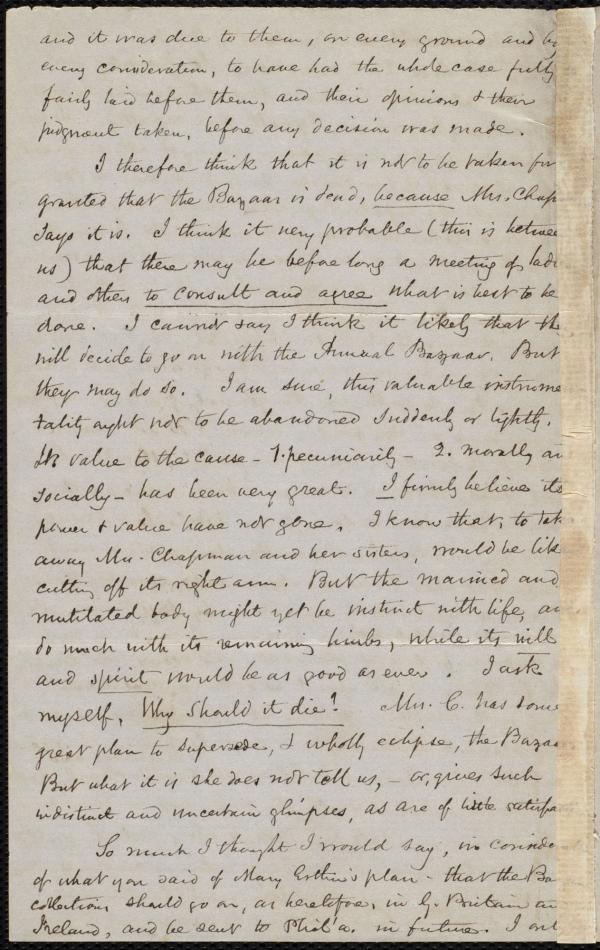 and it was due to them, on every ground and by
every consideration, to have had the whole case fully
fairly laid before them, and their opinions & their
judgment taken, before any decision was made.
I therefore think that it is not to be taken for
granted that the Bazaar is dead, because Mrs. Chap
says it is. I think it very probable (this is betwee
us) that there may be before long a meeting of ladi
and others to consult and agree what is best to be
done. I cannot say I think it likely that th
will decide to go on with the Annual Bazaar. But
they may do so. I am sure, this valuable instrume
tality ought not to be abandoned suddenly or lightly.
Its value to the cause - 1. pecuniarily - 2. morally an
socially - has been very great. I firmly believe its
power & value have not gone. I know that, to tak
away Mrs. Chapman and her sisters, would be lik
cutting off its right arm. But the maimed and
mutilated body might yet be instinct with life, an
do much with its remaining limbs, while its will
and spirit would be as good as ever. I ask
myself, Why should it die? Mrs. C. has some
great plan to supersede, & wholly eclipse, the Bazaa
But what it is she does not tell us, - or, gives such
indistinct and uncertain glimpses, as are of little satisfa
So much I thought I would say, in conside
of what you said of Mary Estlin's plan - that the Ba
collections should go on, as heretofore, in G. Britain an
Ireland, and be sent to Phil'a. in future. I